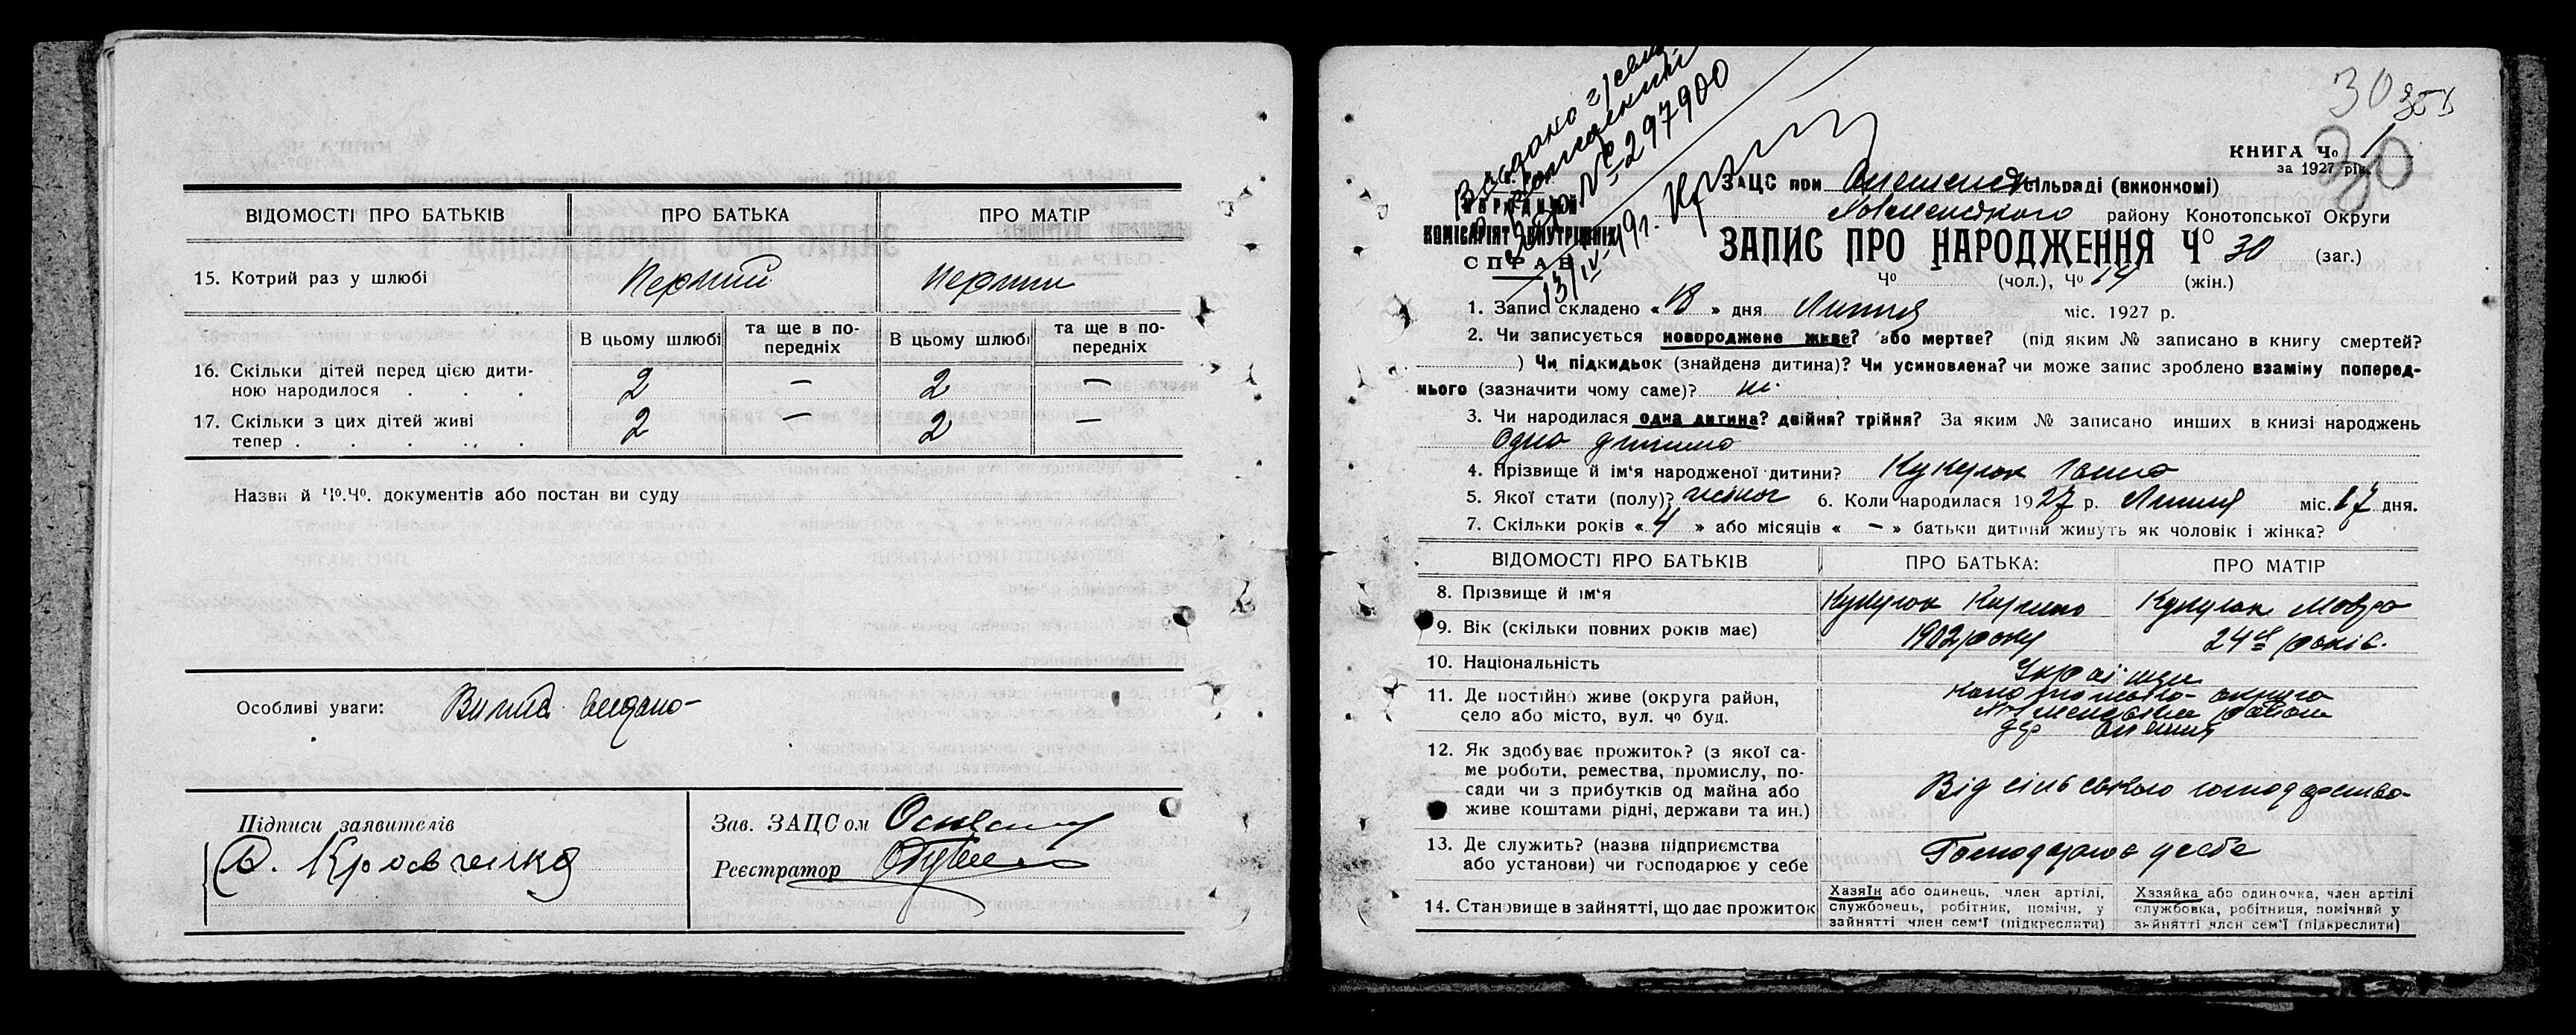 ВІДОМОСТІ ПРО БАТЬКІВ ПРО БАТЬКА ПРО МАТІР
15. Котрий раз у шлюбі Перший перший
В цьому шлюбі та ще в попередніх В цьому шлюбі та ще в попередніх
16. Скільки дітей перед цією дити-
ною народилося . . . 2 — 2 —
17. Скільки з цих дітей живі
тепер . . . . . . 2 — 2 —
Назви й Чо.Чо. документів або постан ви суду
Особливі уваги: Випис видано
Підписи заявителів
Зав. ЗАЦСом
Реєстратор
Видано
№ 297900
13/IV-49г.
30
30
КНИГА Чо 1
за 1927 рік.
ЗАЦС при сільраді (виконкомі)
району Конотопської Округи
НАРОДНИЙ
КОМІСАРІЯТ ВНУТРІШНІХ
СПРАВ
ЗАПИС ПРО НАРОДЖЕННЯ Чо 30 (заг.)
Чо (чол.), Чо 14 (жін.)
1. Запис складено « 18 » дня Липня міс. 1927 р.
2. Чи записується новороджене живе? або мертве? (під яким № записано в книгу смертей?
) Чи підкидьок (знайдена дитина)? Чи усиновлена? чи може запис зроблено взаміну поперед-
нього (зазначити чому саме)? ні
3. Чи народилася одна дитина? двійня? трійня? За яким № записано инших в книзі народжень
Одна дитина
4. Прізвище й ім'я народженої дитини? Ганна
5. Якої статі (полу)? жіноч 6. Коли народилася 1927 р. Липня міс. 17 дня.
7. Скільки років « 4 » або місяців « — » батьки дитини живуть як чоловік і жінка?
ВІДОМОСТІ ПРО БАТЬКІВ ПРО БАТЬКА: ПРО МАТІР
8. Прізвище й ім'я
9. Вік (скільки повних років має) 1902 року 24 років.
10. Національність Українци
11. Де постійно живе (округа район,
село або місто, вул. чо буд. Конотопська округа
район
12. Як здобуває прожиток? (з якої са-
ме роботи, ремества, промислу, по-
сади чи з прибутків од майна або
живе коштами рідні, держави та ин.) Від сільського господарства
13. Де служить? (назва підприємства
або установи) чи господарює у себе Господарює у себе
14. Становище в зайнятті, що дає прожиток
Хазяїн або одинець, член артілі,
службовець, робітник, помічн. у
зайнятті член сем'ї (підкреслити)
Хазяйка або одиночка, член артілі
службовка, робітниця, помічний у
зайнятті член сем'ї (підкреслити)